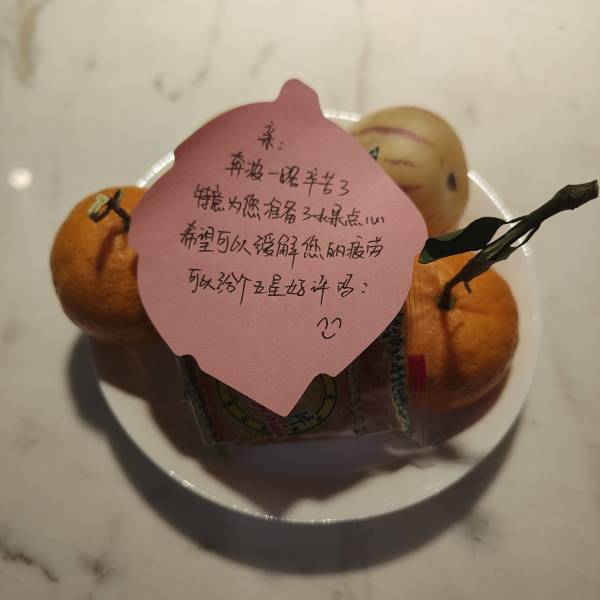 亲:
奔波一路辛苦了
特意为您准备了水果点心
希望可以缓解您的疲劳
可以给个五星好评吗: